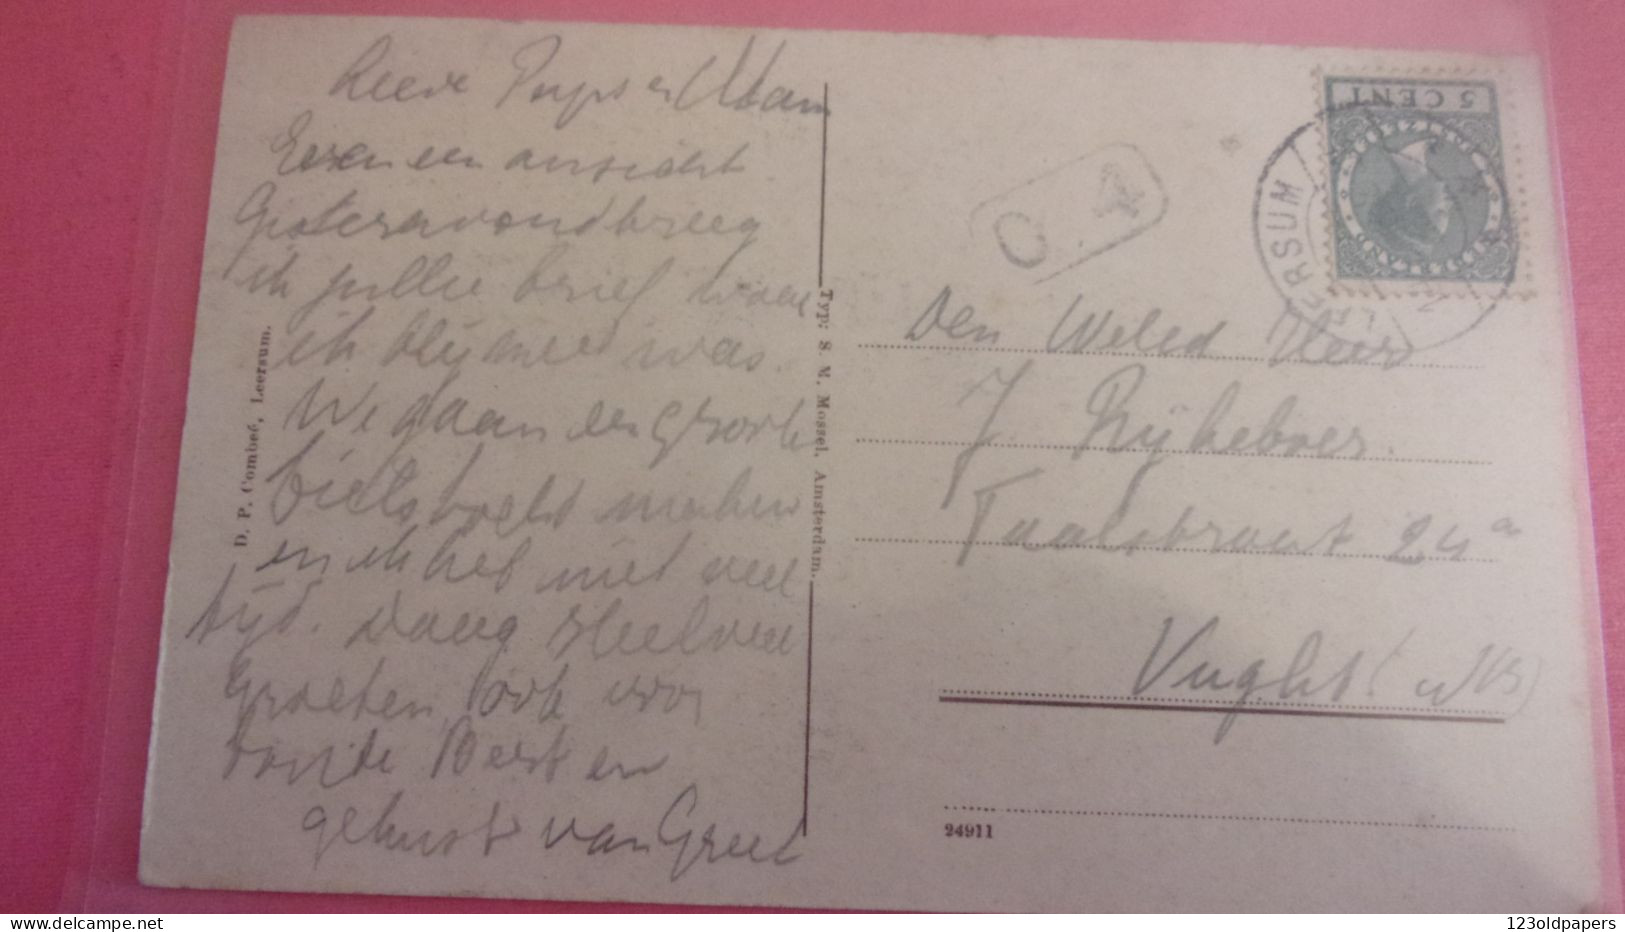 Lieve Paps en Mam
Even een ansicht
Gisteravond kreeg
ik jullie brief waar
ik blij mee was.
We gaan een groote
fietstocht maken
en ik heb niet veel
tijd. Daag Heel veel
groeten, ook voor
tante Bert en
gekust van Greet
D. P. Combeé, Leersum.
Typ: S. M. Mossel, Amsterdam.
5 CENT
LEERSUM
Den Weled Heer
J. Rijkeboer.
Taalstraat 24 a
Vught (NB)
24911
123oldpapers